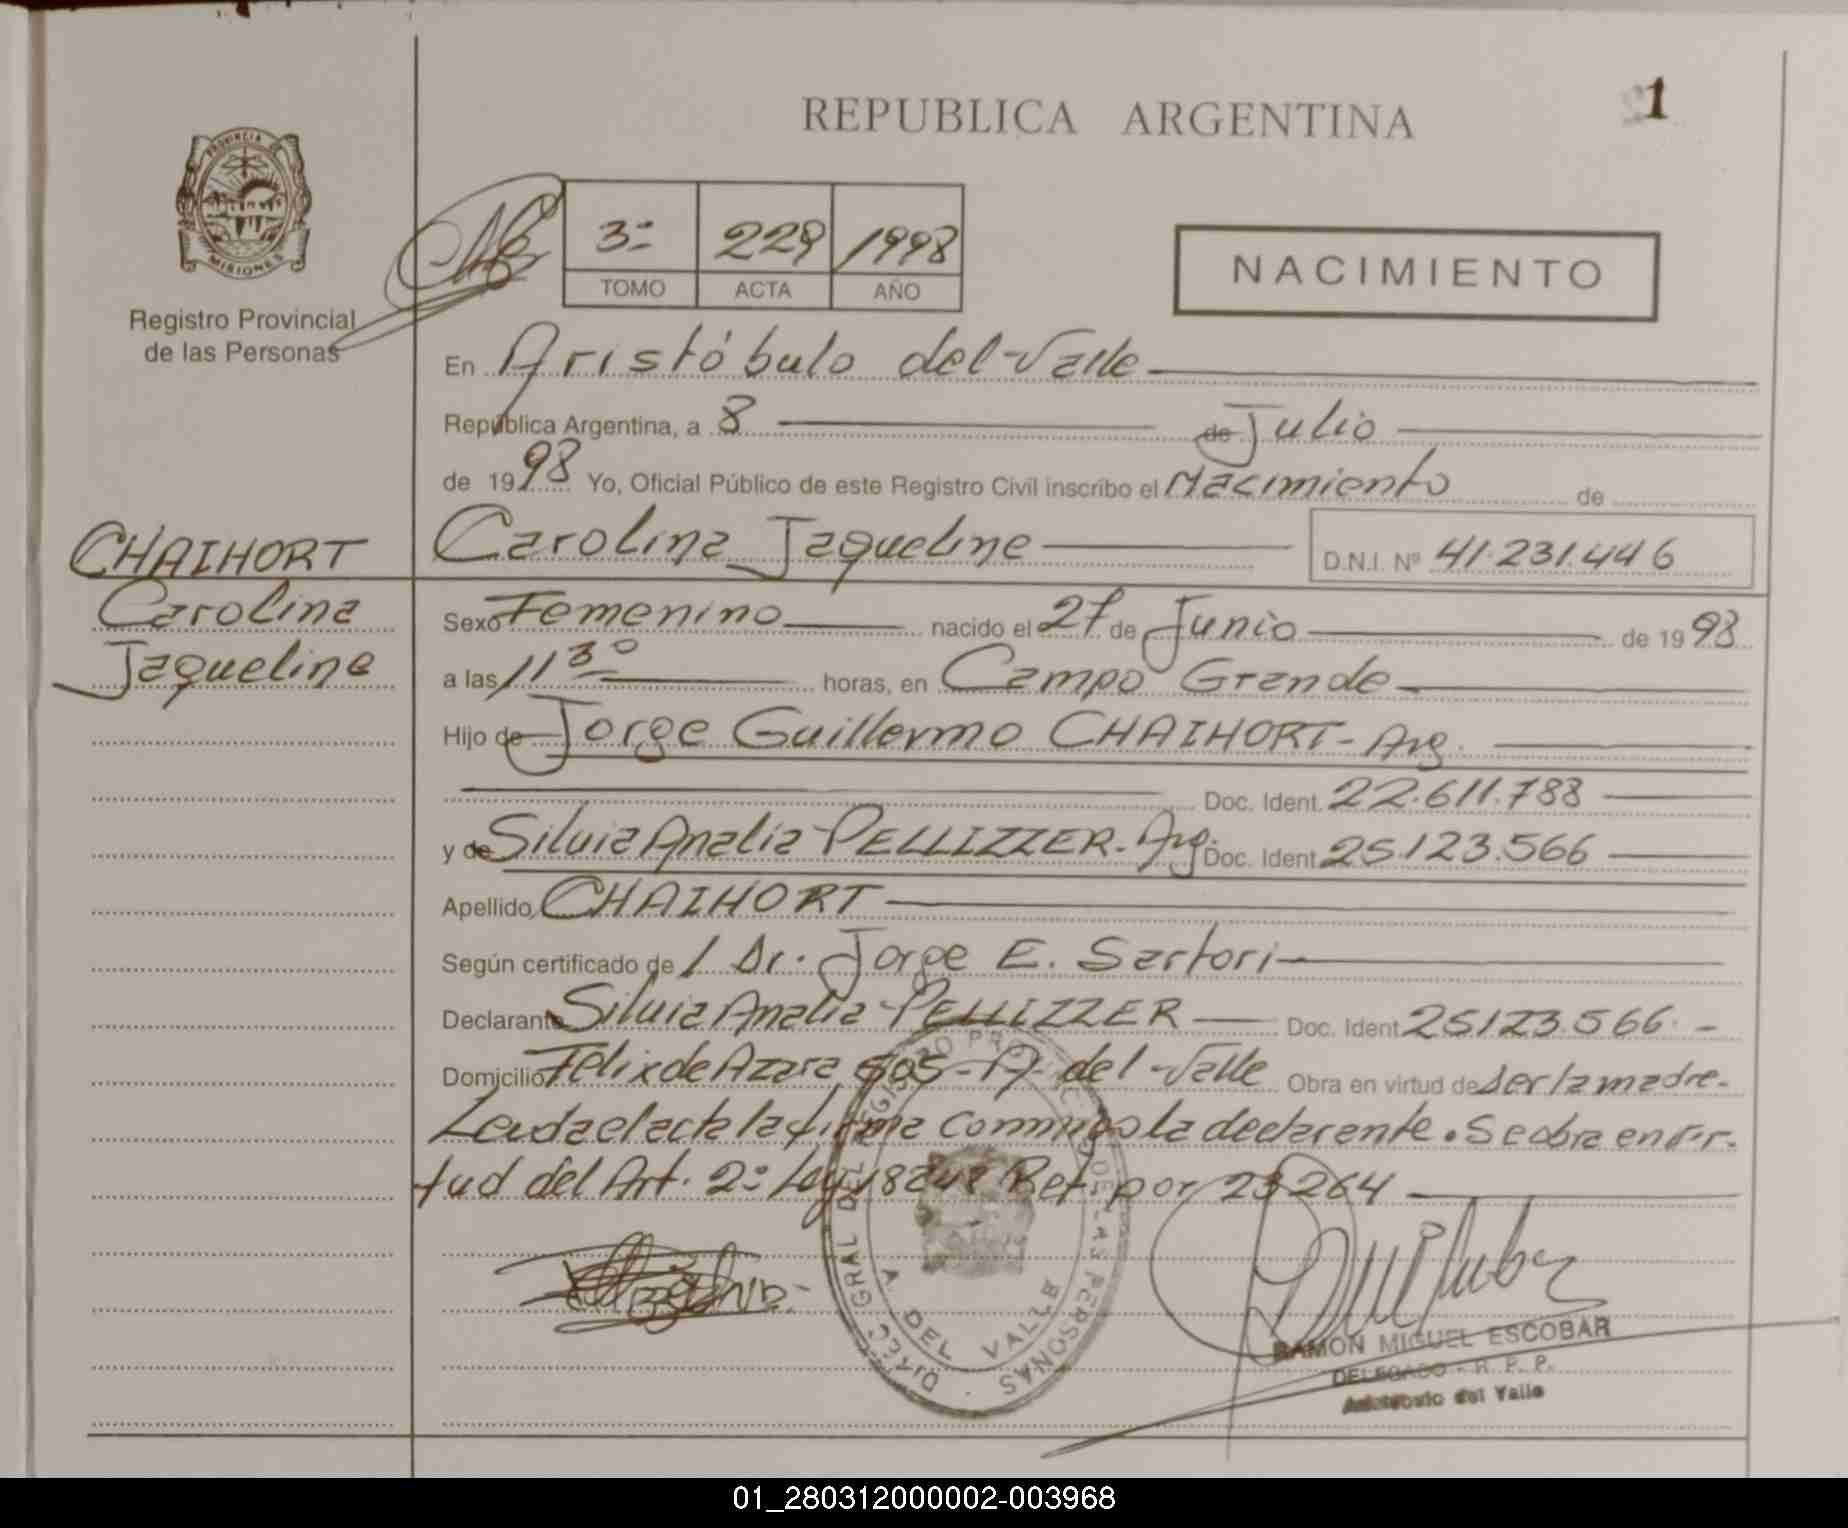 REPUBLICA ARGENTINA
1
PROVINCIA DE
MISIONES
Registro Provincial
de las Personas
3º 229 1998
TOMO ACTA AÑO
NACIMIENTO
En Aristóbulo del Valle
República Argentina, a 8 de Julio
de 1998 Yo, Oficial Público de este Registro Civil inscribo el Nacimiento de
CHAIHORT
Carolina
Jaqueline
Carolina Jaqueline D.N.I. Nº 41.231.446
Sexo Femenino nacido el 27 de Junio de 1998
a las 11 30 horas, en Campo Grande
Hijo de Jorge Guillermo CHAIHORT - Arg.
Doc. Ident. 22.611.788
y de Silvia Analia PELLIZZER. Arg. Doc. Ident. 25.123.566
Apellido CHAIHORT
Según certificado de / Dr. Jorge E. Sartori
Declarante Silvia Analia PELLIZZER Doc. Ident. 25123.566. -
Domicilio Félix de Azara 505 - A. del Valle Obra en virtud de ser la madre.
Leida el acta la firma conmigo la declarante. Se obra en vir-
tud del Art. 2º Ley 18248 Ref. por 23264
DIREC. GRAL DEL REGISTRO PROVINC. DE LAS PERSONAS
A. DEL VALLE
RAMON MIGUEL ESCOBAR
DELEGADO - R. P. P.
Aristobulo del Valle
01_280312000002-003968